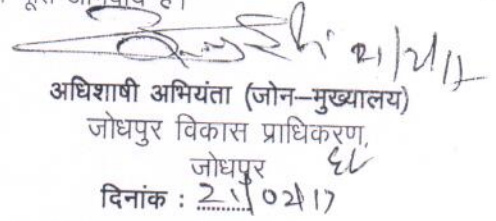 21/2/17
अधिशाषी अभियंता (जोन–मुख्यालय)
जोधपुर विकास प्राधिकरण,
जोधपुर
दिनांक : 21/02/17